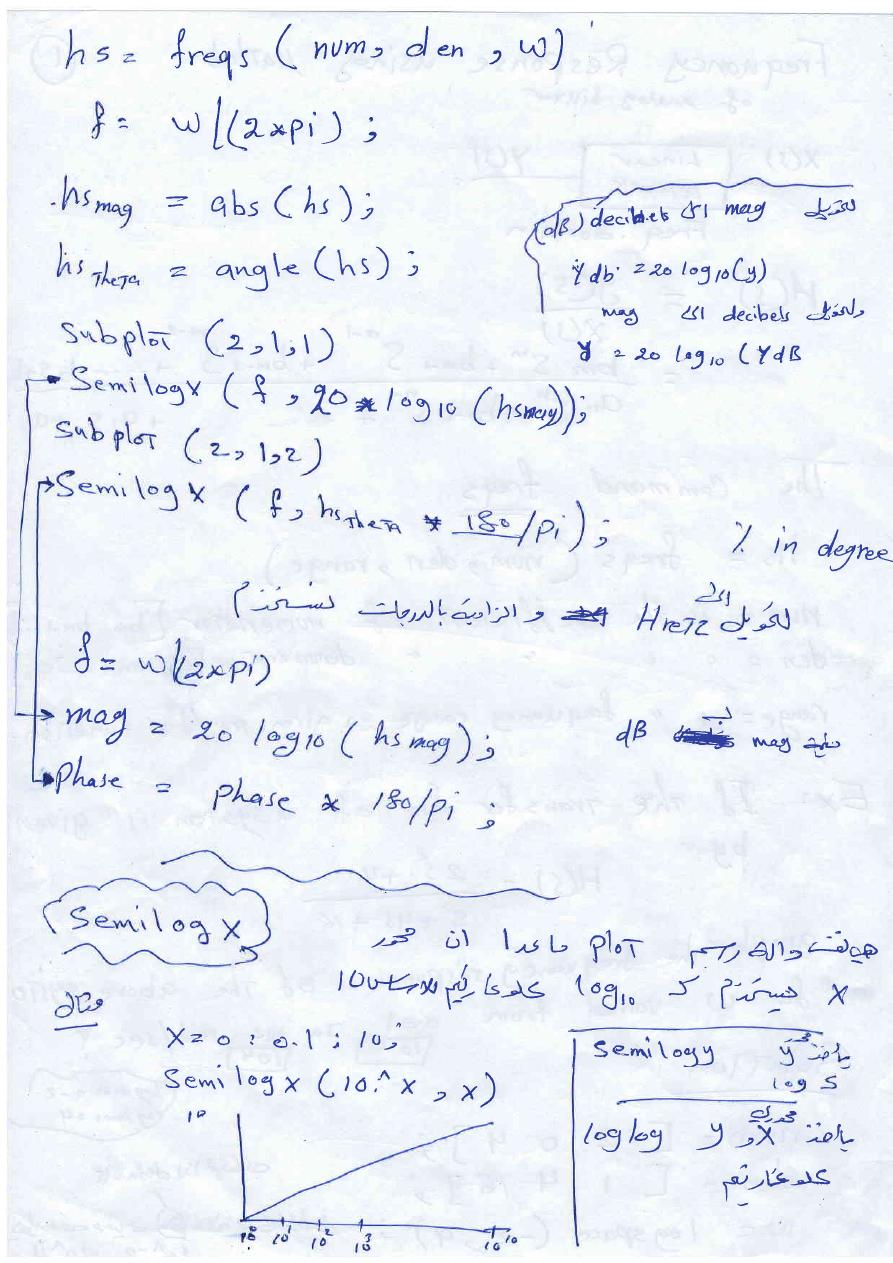 hs = freqs ( num, den , w)
f = w/(2*pi) ;
hs mag = abs (hs);
hs Theta = angle (hs) ;
لتحويل mag الى decibels (dB)
Ydb = 20 log10(y)
ولتحويل decibels الى mag
y = 20 log10 (YdB
Subplot (2,1,1)
Semilogx ( f , 20 * log10 (hsmag));
Subplot (2,1,2)
Semilogx ( f, hs Theta * 180/pi ) ; % in degree
لتحويل الى HreTz و الزاوية بالدرجات نستخدم
f = w/(2*pi)
mag = 20 log10 ( hs mag) ;
mag بـ dB
Phase = phase * 180/pi ;
Semilog x
هي نفس دالة رسم plot ماعدا ان محور
X يستخدم كـ log10 كلوغاريتم
مثال
X = 0 : 0.1 : 10;
Semilogx (10.^ x , x)
10
10^0 10^1 10^2 10^3 10^10
Semilogy ياخذ محور y
log
loglog ياخذ محوري X و y
كلوغاريتم